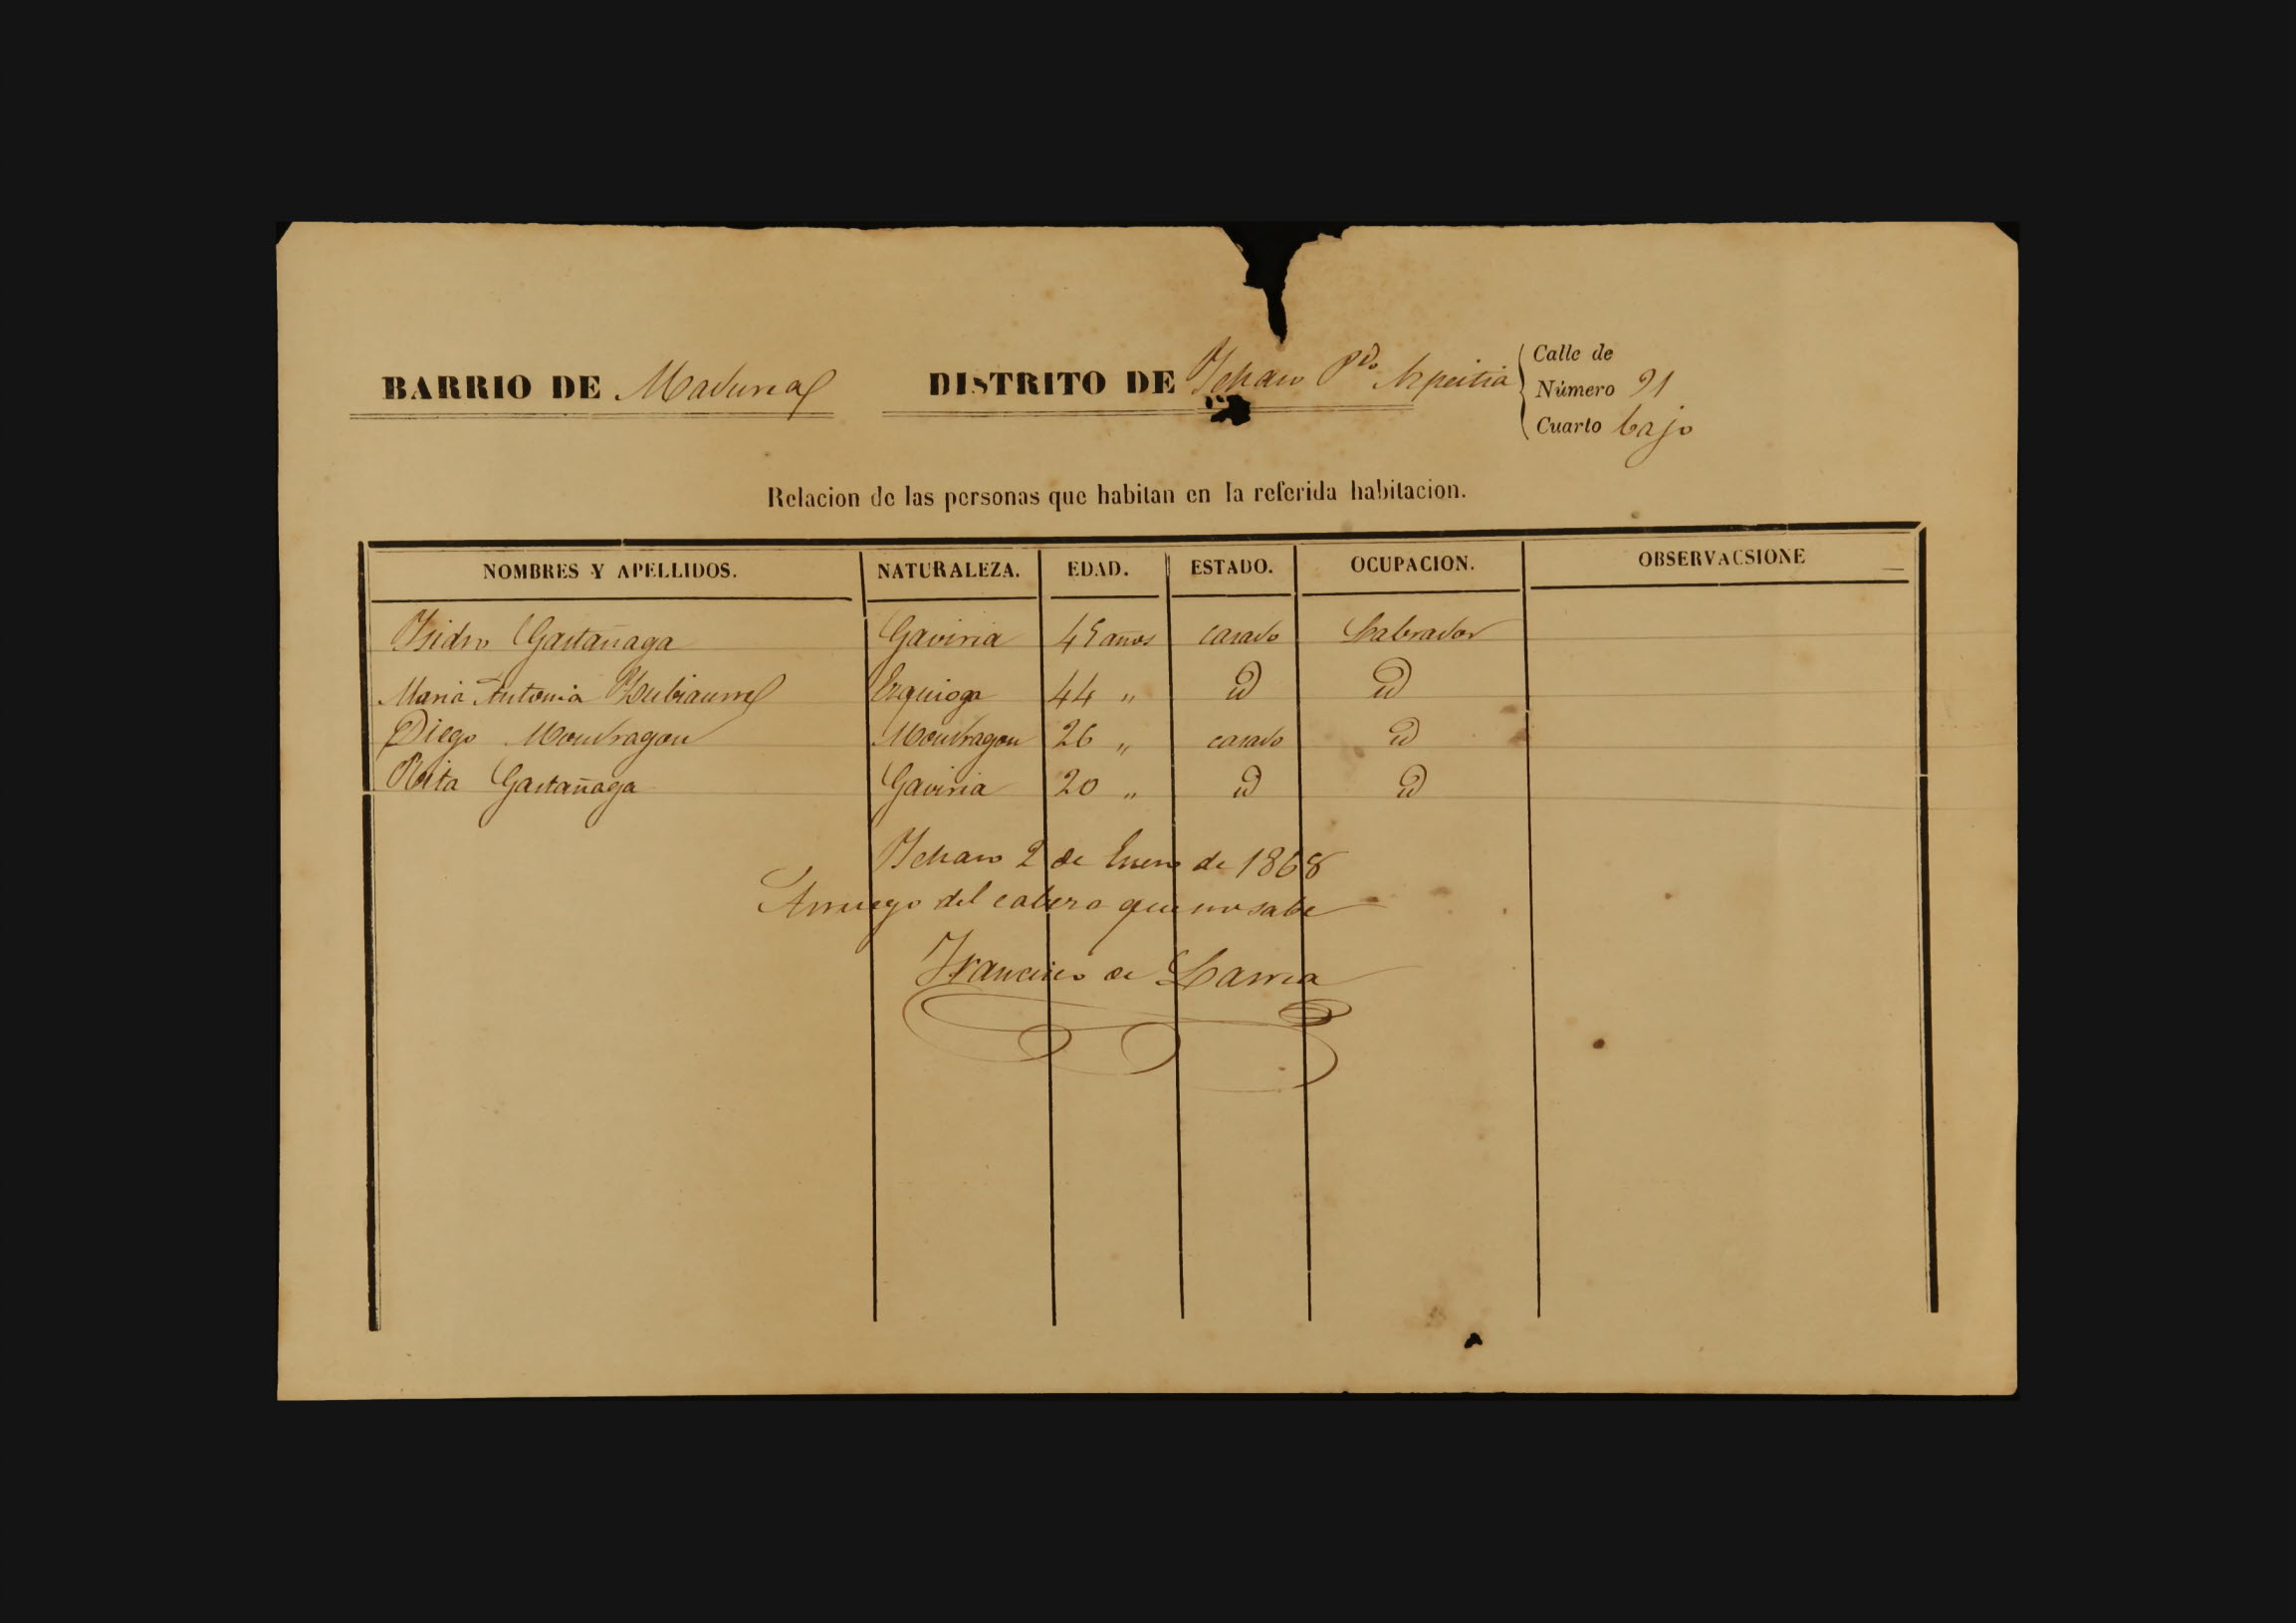 BARRIO DE Madura DISTRITO DE Ichaso Pdo. Azpeitia
Calle de
Número 91
Cuarto bajo
Relacion de las personas que habitan en la referida habitacion.
NOMBRES Y APELLIDOS. NATURALEZA. EDAD. ESTADO. OCUPACION. OBSERVACSIONE
Isidro Gastañaga Gaviria 45 años casado Labrador
Maria Antonia Ezquioga 44 " id id
Diego Mondragon Mondragon 26 " casado id
Rita Gastañaga Gaviria 20 " id id
Ichaso 2 de Enero de 1868
Arruego del cabeza que no sabe
Francisco de Larrea